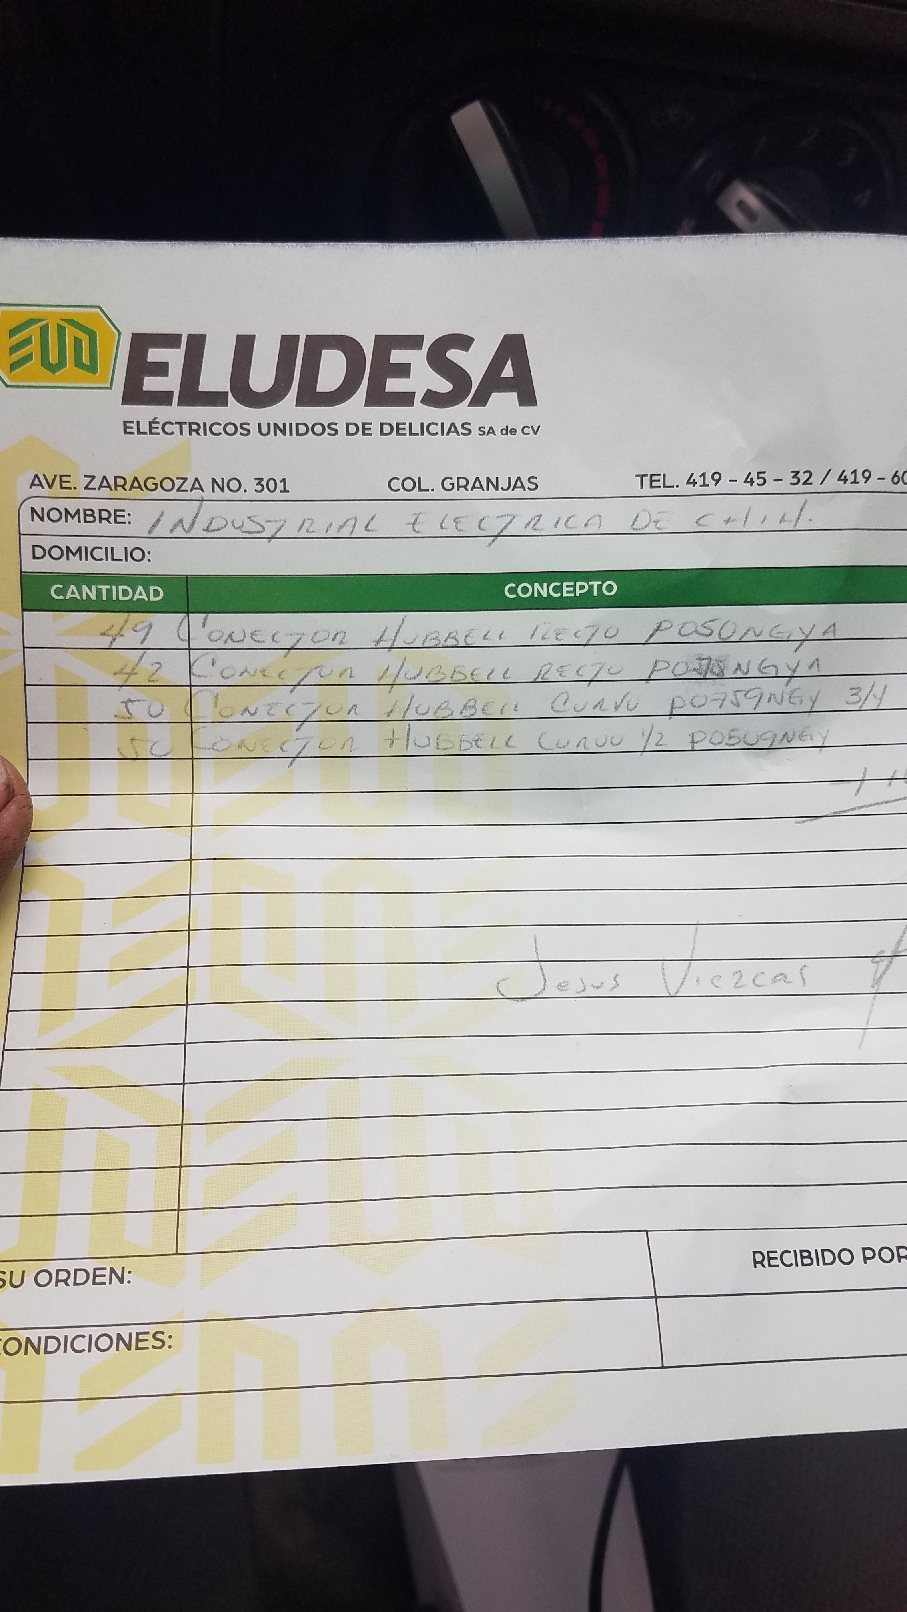 EUD ELUDESA
ELÉCTRICOS UNIDOS DE DELICIAS SA de CV
AVE. ZARAGOZA NO. 301 COL. GRANJAS TEL. 419 - 45 - 32 / 419 - 60
NOMBRE: INDUSTRIAL ELECTRICA DE CHIH.
DOMICILIO:
CANTIDAD CONCEPTO
49 CONECTOR HUBBELL RECTO PO50NGYA
42 CONECTOR HUBBELL RECTO PO75NGYA
50 CONECTOR HUBBELL CURVO PO759NGY 3/4
50 CONECTOR HUBBELL CURVO 1/2 PO509NGY
Jesus Viezcas
SU ORDEN:
RECIBIDO POR
CONDICIONES: